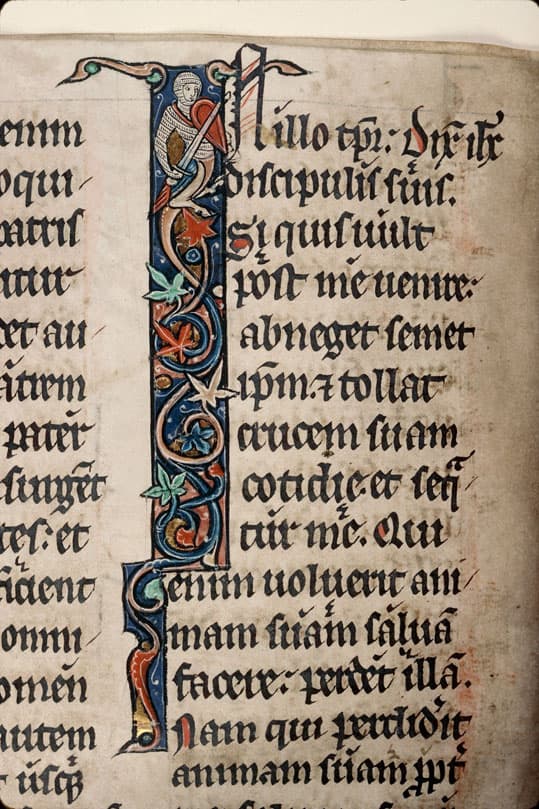 enim
oqui
patris
et au
pater
tes: et
ficient
omni
omen
autem
usq;
In illo tpr̄: dix̄ ihc̄
discipulis suis.
Si quis uult
post me uenire:
abneget semet
ipm̄. ⁊ tollat
crucem suam
cotidie. et seq̄
tur me. Qui
enim uoluerit ani
mam suam saluā
facere: perdet illā.
Nam qui perdidit
animam suam ppt̄